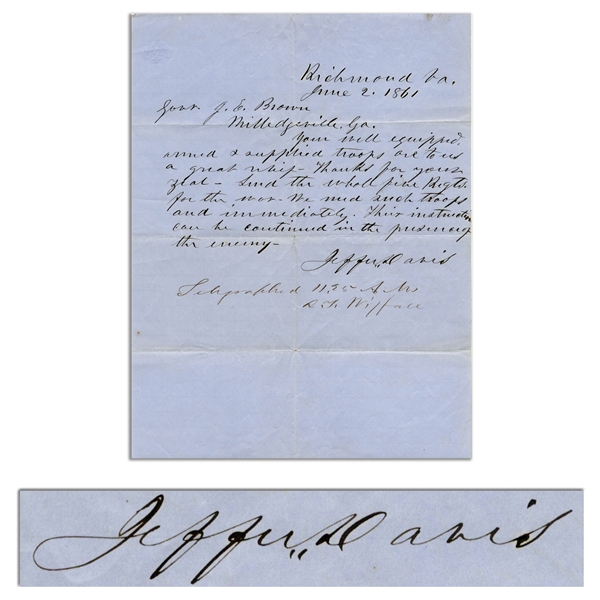 Richmond Va.
June 2. 1861
Gov. J. E. Brown
Milledgeville, Ga.
Your well equipped,
armed & supplied troops are to us
a great relief - Thanks for your
zeal - Send the whole five Regts.
for the war. We need such troops
and immediately. Their instruction
can be continued in the presence of
the enemy -
Jeffn. Davis
Telegraphed 11.35 A.M.
L. T. Wigfall
Jeffn. Davis